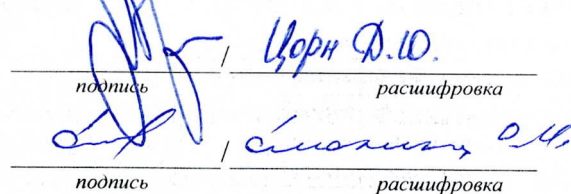 / Цорн Д.Ю.
подпись расшифровка
/ О.М.
подпись расшифровка